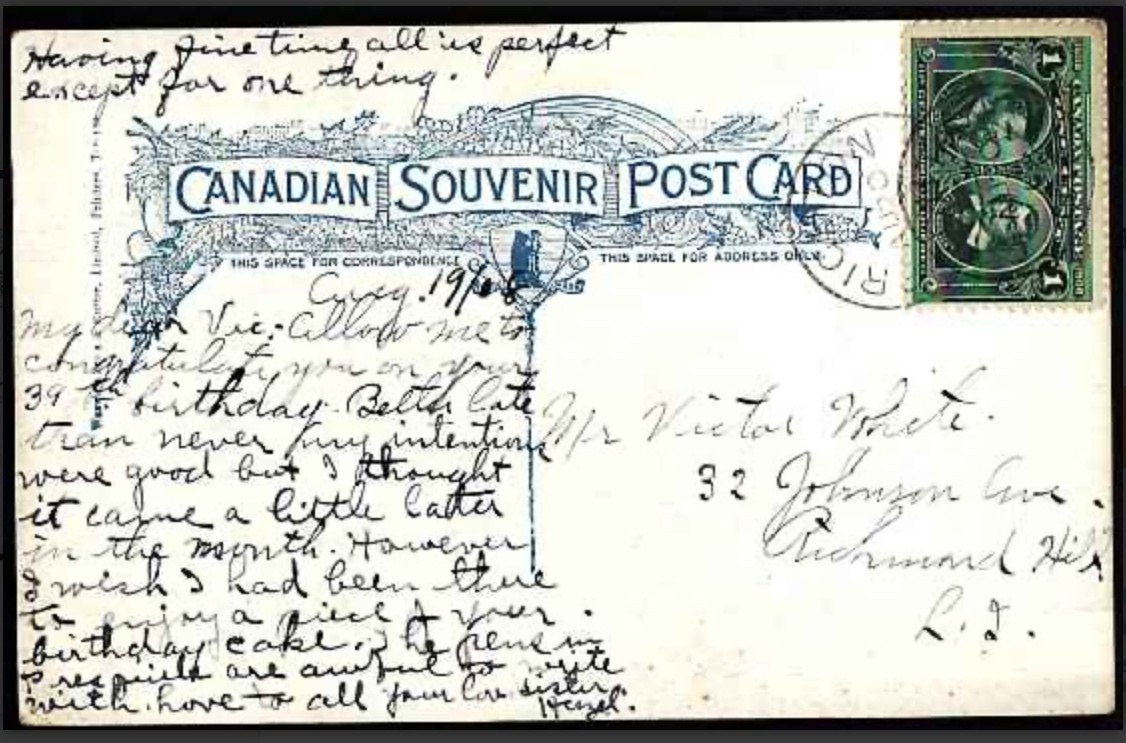 Having fine time, all is perfect
except for one thing.
CANADIAN SOUVENIR POST CARD
THIS SPACE FOR CORRESPONDENCE
THIS SPACE FOR ADDRESS ONLY.
Aug. 19/08
My dear Vic. Allow me to
congratulate you on your
39th birthday. Better late
than never my intentions
were good but I thought
it came a little later
in the month. However
I wish I had been there
to enjoy a piece of your
birthday cake. The pens in
are awful to write
with. Love to all your lov. sister
Hazel.
Mr Victor White.
32 Johnson Ave.
Richmond Hill
L. I.
RIC
1
1